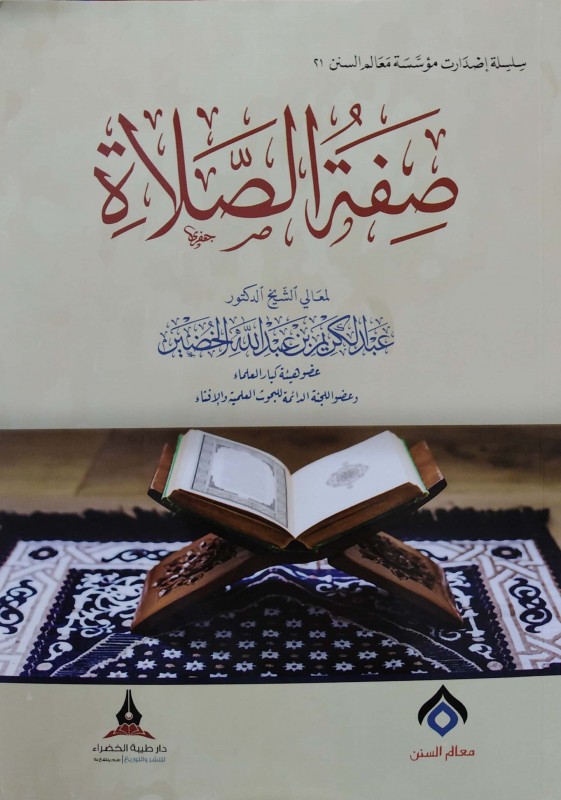 سلسلة إصدارت مؤسسة معالم السنن ٢١
صِفَةُ الصَّلَاة
جعفري
لمعالي الشيخ الدكتور
عبد الكريم بن عبد الله الخضير
عضو هيئة كبار العلماء
وعضو اللجنة الدائمة للبحوث العلمية والإفتاء
معالم السنن
دار طيبة الخضراء
للنشر والتوزيع | علم ينتفع به